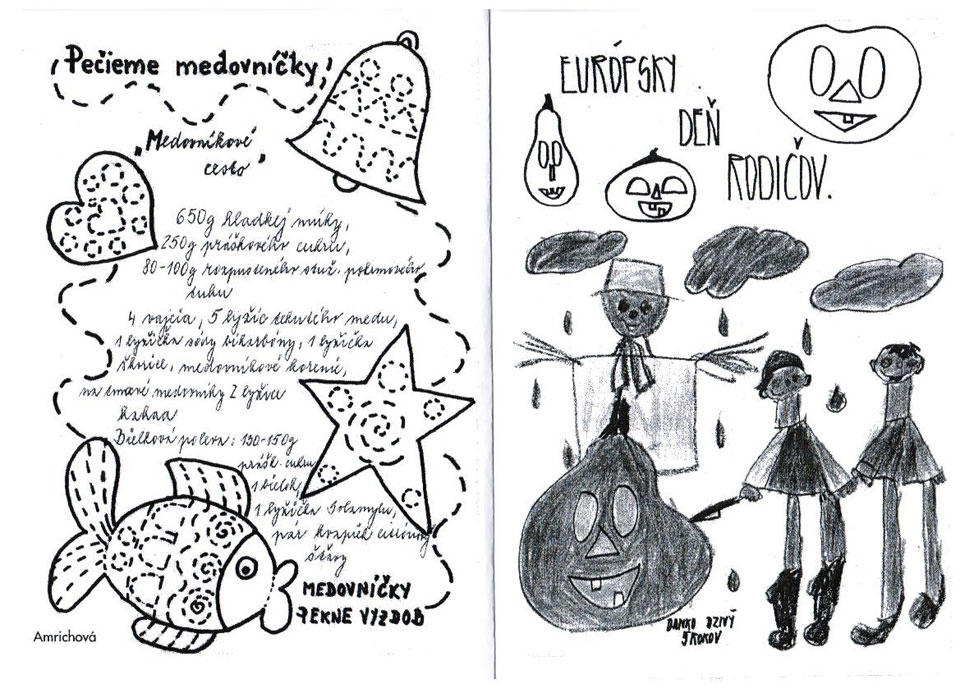 Pečieme medovníčky
„Medovníkové
cesto"
650g hladkej múky,
250g práškového cukru,
80-100g rozpusteného stuž. pokrmového
tuku
4 vajcia, 5 lyžíc tekutého medu,
1 lyžička sódy bikarbóny, 1 lyžička
škorice, medovníkové korenie,
na tmavé medovníky 2 lyžice
kakaa
Bielková poleva: 130-150g
prášk. cukru
1 bielok,
1 lyžička Solamylu,
pár kvapiek citrónovej
šťavy
MEDOVNÍČKY
PEKNE VYZDOB
Amrichová
EURÓPSKY
DEŇ
RODIČOV.
DANKO DZIVÝ
5 ROKOV